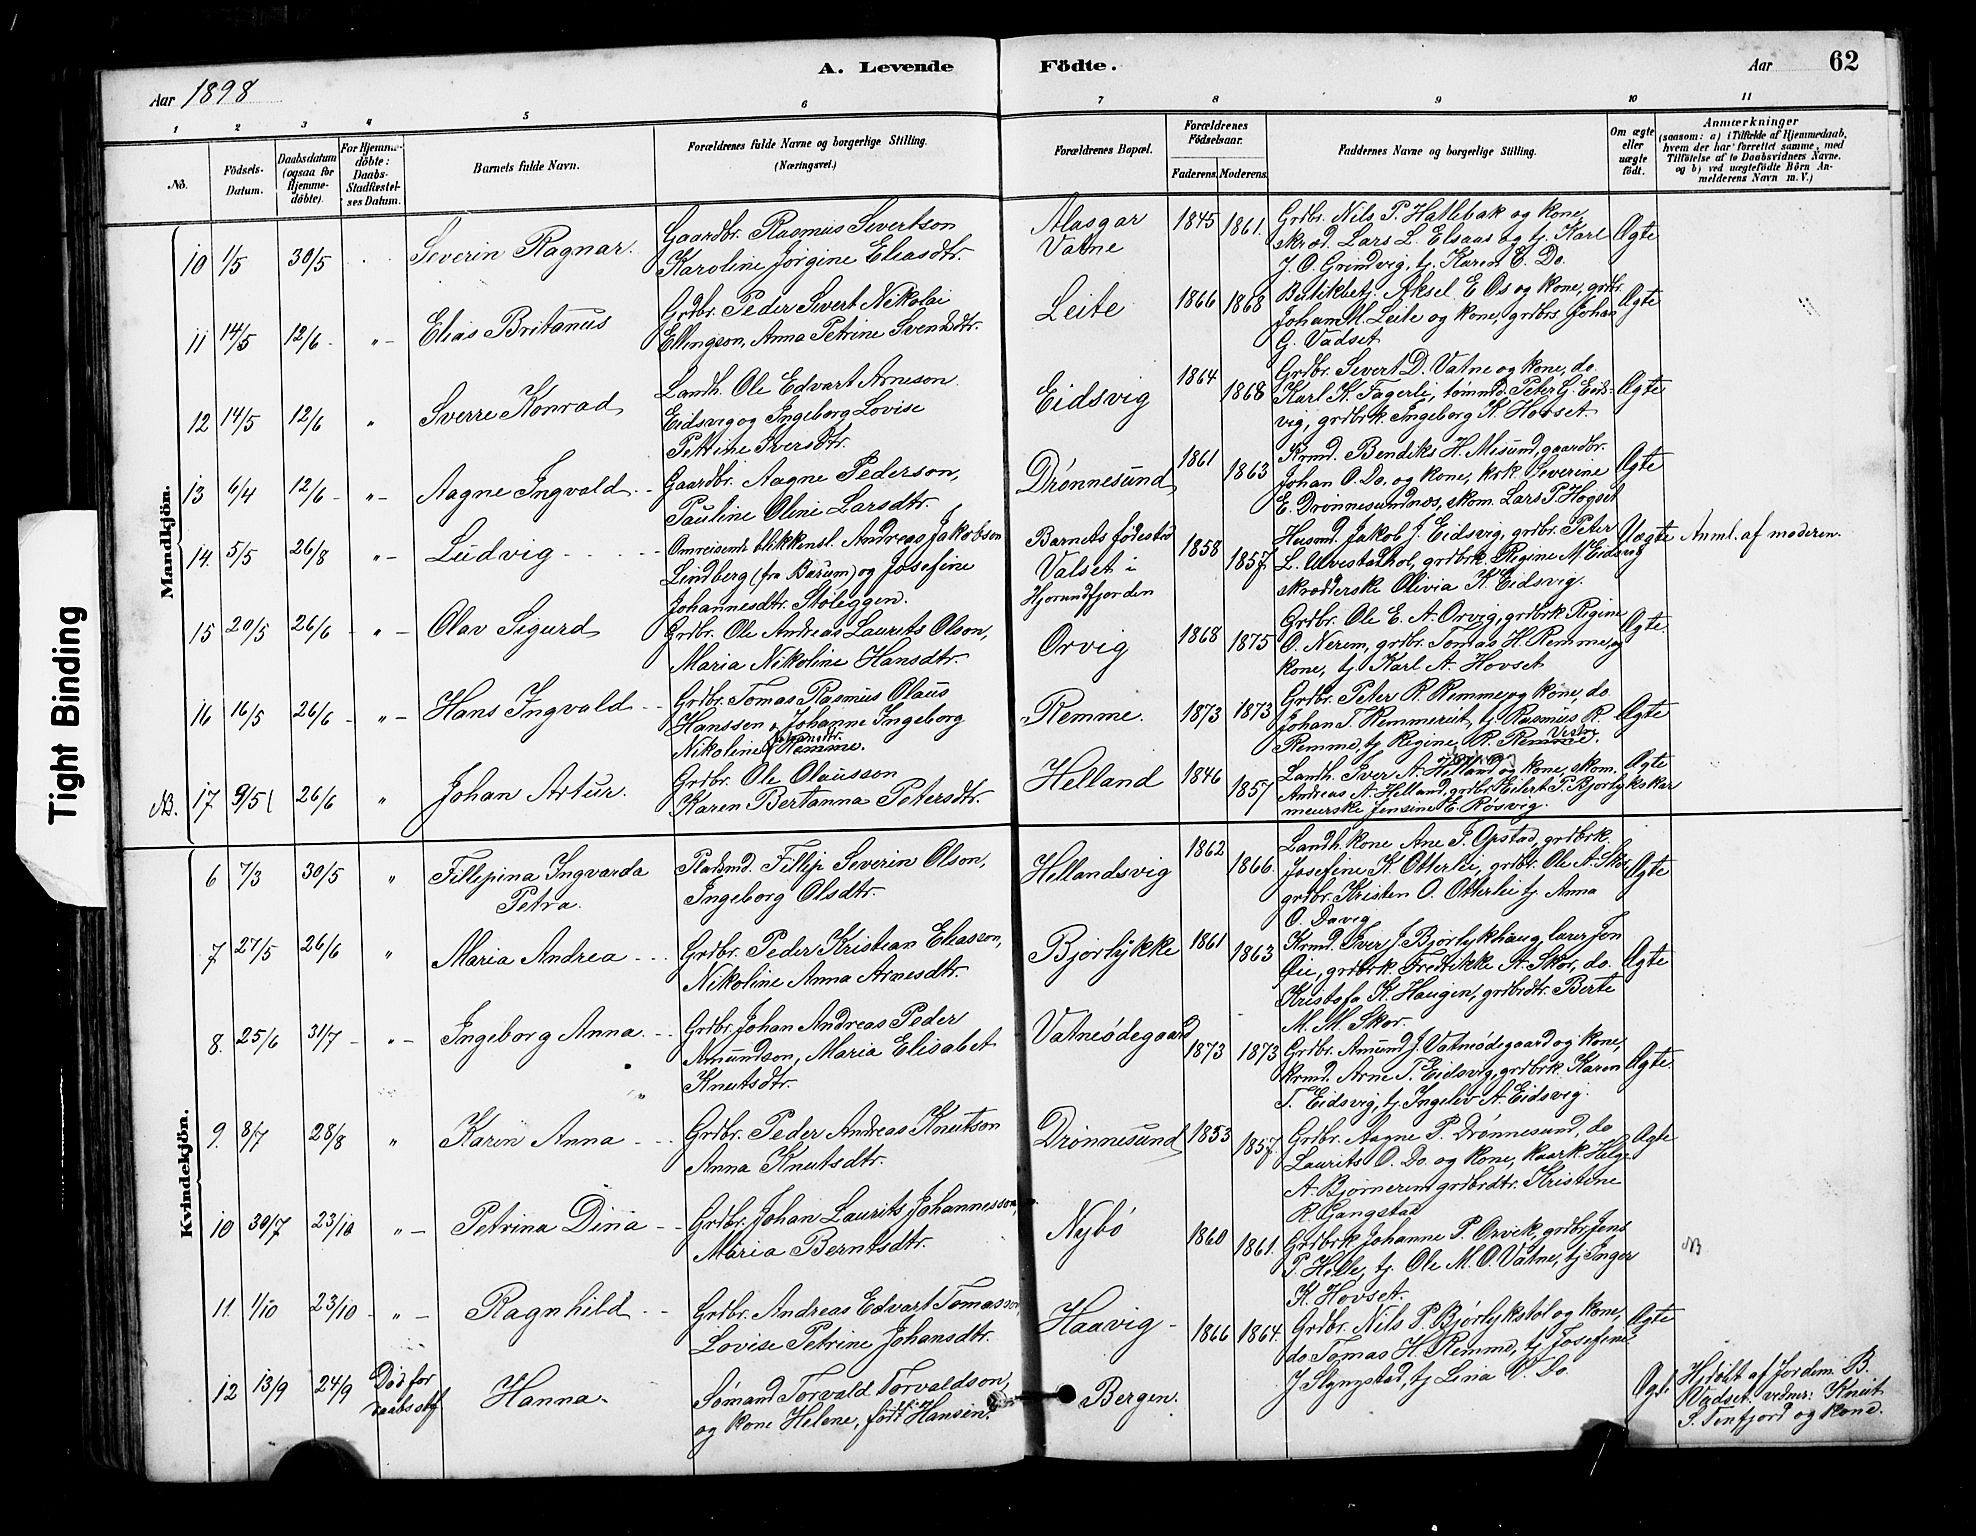 A. Levende Födte.
Aar 1898
Aar 62
1 2 3 4 5 6 7 8 9 10 11
No.
Födsels-Datum.
Daabsdatum (ogsaa for Hjemmedöbte).
For Hjemmedöbte: Daabs-Stadfæstelses Datum.
Barnets fulde Navn.
Forældrenes fulde Navne og borgerlige Stilling. (Næringsvei.)
Forældrenes Bopæl.
Forældrenes Födselsaar.
Faderens. Moderens.
Faddernes Navne og borgerlige Stilling.
Om ægte eller uægte födt.
Anmærkninger
(saasom: a) i Tilfælde af Hjemmedaab, hvem der har forrettet samme, med Tilföielse af to Daabsvidners Navne. og b) ved uægtefödte Börn Anmelderens Navn m. V.)
Mandkjön.
10 1/5 30/5 Severin Ragnar. Gaardbr. Rasmus Sivertson Karoline Jørgine Eliasdtr. Alasgar Vatne 1845 1861. Grdbr. Nils P. Hatlebak og kone, skræd. Lars L. Elsaas og tj. Karl J. O. Grindvig, tj. Karen E. Do. Ægte
11 14/5 12/6 - " - Elias Britanus Grdbr. Peder Sivert Nikolai Ellingson, Anna Petrine Svendsdtr. Leite 1866 1868 Butikbetj. Aksel E Os og kone, grdbr. Johan M. Leite og kone, grdbrs Johan G. Vadset Ægte
12 14/5 12/6 " Sverre Konrad Landh. Ole Edvart Arneson Eidsvig og Ingeborg Lovise Petrine Iversdtr. Eidsvig 1864 1868 Grdbr. Sivert D. Vatne og kone, do. Karl K. Fagerli, tømmd. Peter G. Eidsvig, grdbrk. Ingeborg K. Hovset. Ægte
13 6/4 12/6 - " - Aagne Ingvald - - Gaardbr. Aagne Pederson, Pauline Oline Larsdtr. Drønnesund 1861 1863 Krmd. Bendiks H. Misund, gaardbr. Johan O. Do. og kone, krk. Severine E. Drønnesundnæs, skom. Lars P. Hogset Ægte
14. 5/5 26/8 " - Ludvig - - - - Omreisende blikkensl. Andreas Jakobson Lindberg (fra Bærum) og Josefine Johannesdtr. Støleggen. Barnets fødested Valset i Hjorundfjorden 1858 1857. Husmd. Jakob J. Eidsvig, grdbr. Peter L. Ulvestadhol, grdbrk. Regine N. Eidsvig skrædderske Olivia K. Eidsvig. Uægte Anml. af moderen.
15 20/5 26/6 - " - Olav Sigurd Grdbr. Ole Andreas Laurits Olson, Maria Nikoline Hansdtr. Orvig 1868 1875 Grdbr. Ole E. A. Orvig, grdbrk Regine O. Nerem, grdbr. Tomas H. Remme, og kone, tj. Karl A. Hovset Ægte.
16 16/5 26/6 - " - Hans Ingvald - - Grdbr. Tomas Rasmus Olaus Hansson, Johanne Ingeborg Nikoline Johansdtr. Remme. Remme. 1873 1873 Grdbr. Peter R. Remme og kone, do Johan T. Remmereit, tj. Rasmus R. Remme, tj. Regine R. Remme. Vestre Ægte
NB. 17 9/5 26/6 " Johan Artur. Grdbr. Ole Olausson Karen Bertanna Petersdtr. Helland 1846 1857 Landh. Iver A. Helland og kone, skom. Andreas A. Helland, grdbr. Eilert P. Bjørlykskar meierske Jensine E. Røsvig. Ægte
Kvindekjön.
6 7/3 30/5 " Fillepina Ingvarda Petra. Pladsmd. Fillip Severin Olson, Ingeborg Olsdtr. Hellandsvig 1862 1866. Landh. kone Ane J. Opstad, grdbrk. Josefine K. Otterlei, grdbr. Ole A. Skor, grdbr. Kristen O. Otterlei tj. Anna O. Davig Ægte
7 27/5 26/6 " Maria Andrea - - - Grdbr. Peder Kristian Eliasson, Nikoline Anna Arnesdtr. Bjørlykke 1861 1863 Krmd. Iver J. Bjørlykhaug, lærer Jon Øie, grdbrk. Fredrikke A. Skor, do. Kristofa K. Haugen, grdbrdtr. Berte M. M. Skor. Ægte
8. 25/6 31/7 - " - Ingeborg Anna. - - Grdbr. Johan Andreas Peder Amundson, Maria Elisabet Knutsdtr. Vatneødegaard 1873 1873 Grdbr. Amund J. Vatneødegaard og kone, krmd. Arne T. Eidsvig, grdbrk. Karen T. Eidsvig, tj. Ingelev A. Eidsvig. Ægte.
9. 8/7 28/8 " Karen Anna - - - Grdbr. Peder Andreas Knutson Anna Knutsdtr. Drønnesund 1853 1857. Grdbr. Aagne P. Drønnesund, do Laurits O. Do. og kone, kaark. Helge A. Bjørnerem grdbrdtr. Kristine R. Gangstad Ægte
10 30/7 23/10 " - Petrina Dina - - Grdbr. Johan Laurits Johannesson, Maria Berntsdtr. Nybø 1860 1861. Grdbrk Johanne P. Orvik, grdbr. Jens P. Helle, tj. Ole M. O. Vatne, tj. Inger K. Hovset. NB
11. 1/10 23/10 - " - Ragnhild - - Grdbr. Andreas Edvart Tomasson Lovise Petrine Johansdtr. Haavig - 1866 1864. Grdbr. Nils P. Bjørlykstol og kone, do Tomas H. Remme, tj. Josefine J Slyngstad, tj Lina O. Do. Ægte
12 13/9 24/9 Død før daabsstf. Hanna. Sømand Torvald Torvaldson, og kone Helene, født Hansen. Bergen. Ægte Hjdøbt af Jordem. B. Vadset. vidner: Knut P. Tenfjord og kone.
Tight Binding